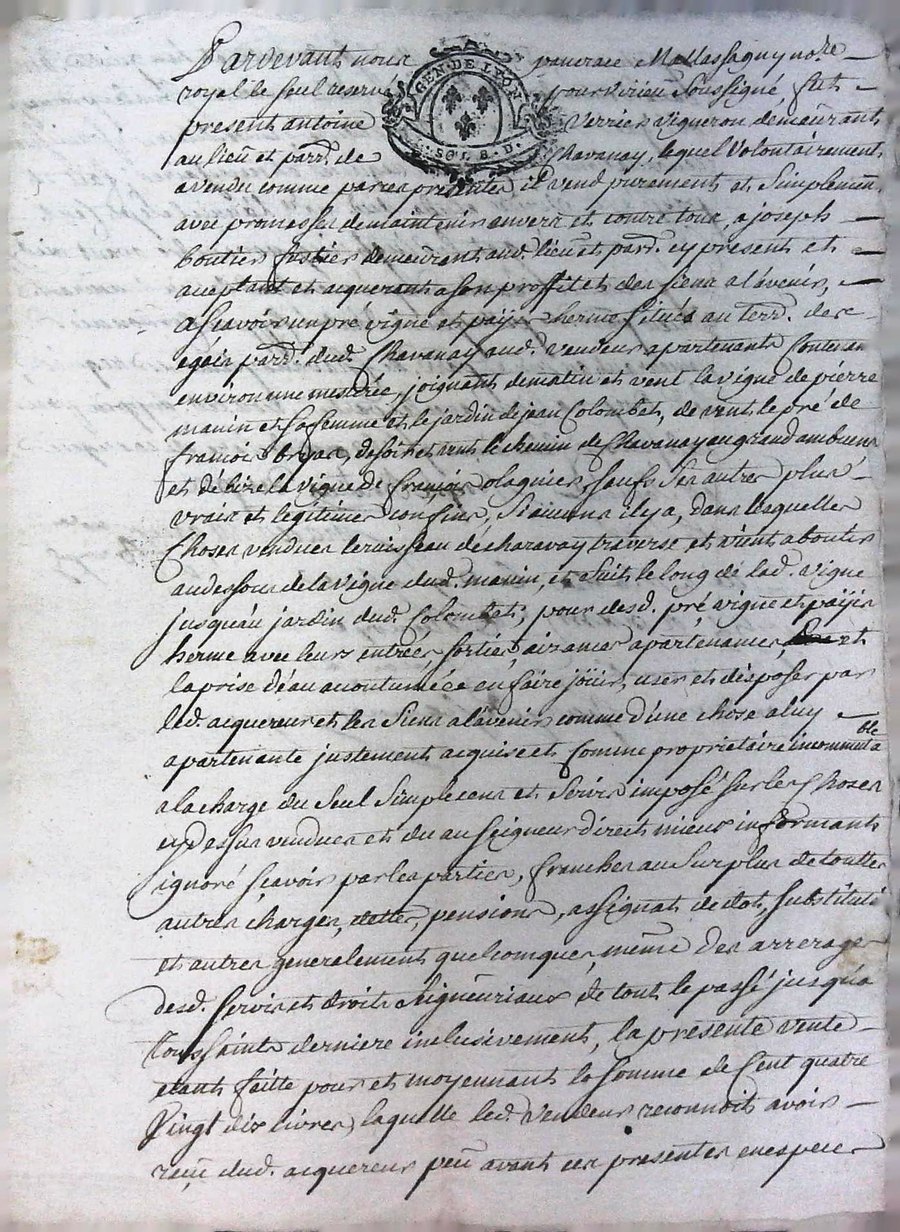 Pardevant nous pancrace Mallassagny no.re
royal le seul reservé pour virieu soussigné fut
present antoine Verrier vigneron demeurant
au lieu et parr. de Chavanay, lequel volontairement
a vendu comme par ces presentes il vend purement et simplement
avec promesse de maintenir envers et contre tous, a joseph
boutier fustier demeurant aud. lieu et parr. cy present et
acceptant et acquerant a son proffit et des siens a l'avenir,
Ascavoir un pré vigne et paÿs herme situés au terr. des
parr. dud. Chavanay aud. vendeur apartenants Contenant
environ une mesterée, joignant de matin et vent la vigne de pierre
manin et sa femme et le jardin de jean Colombet, de vent le pré de
francois de soir et vent le chemin de Chavanay au grand
et de bize la vigne de francois olagnier, saufs ses autres plus
vrais et legitimes confins, si aucuns il y a, dans lesquelles
Choses vendues le ruisseau de charavay traverse et vient aboutir
au dessous de la vigne dud. manin, et suit le long de lad. vigne
jusqu'au jardin dud. Colombet, pour desd. pré vigne et païs
herme avec leurs entrées, sorties, aizances apartenances, et
la prise d'eau acoutumée en faire joüir, user et disposer par
led. acquereur et les siens a l'avenir comme d'une chose a luy
apartenante justement acquise et Comme proprietaire incommutable
a la charge du seul simple cens et servis imposé sur les Choses
cy dessus vendues et du au seigneur direct mieux informants
ignoré scavoir par les parties, franches au surplus de touttes
autres charges, dettes, pensions, assignats de dots, substitutions
et autres generalement quelconques, même des arrerages
desd. servis et droits seigneuriaux de tout le passé jusqu'a
toussaints derniere inclusivement, la presente vente
etant faitte pour et moyennant la somme de Cent quatre
Vingt dix livres, laquelle led. vendeur reconnoit avoir
reçu dud. acquereur peu avant ces presentes en especes
GEN. DE LYON
SOLS. D.